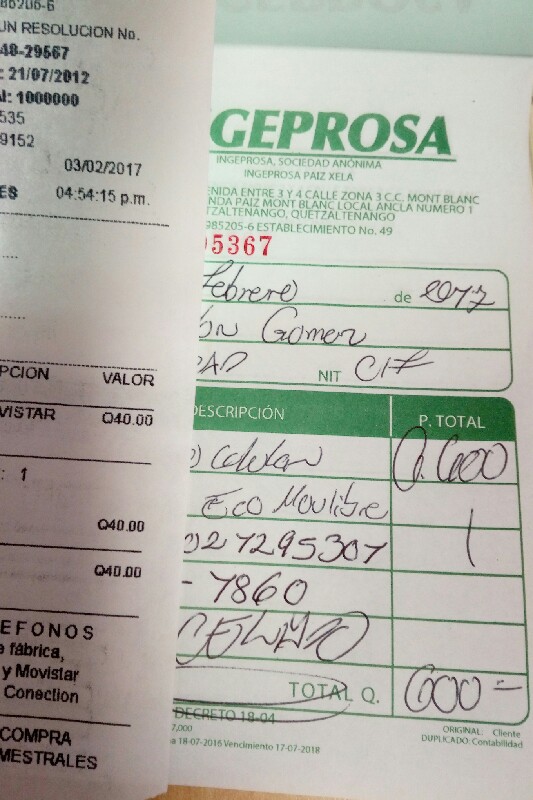 85205-6
UN RESOLUCION No.
48-29567
: 21/07/2012
AI: 1000000
535
9152
03/02/2017
ES 04:54:15 p.m.
PCION VALOR
VISTAR Q40.00
: 1
Q40.00
Q40.00
EFONOS
e fábrica,
y Movistar
Conection
COMPRA
MESTRALES
GEPROSA
INGEPROSA, SOCIEDAD ANÓNIMA
INGEPROSA PAIZ XELA
ENIDA ENTRE 3 Y 4 CALLE ZONA 3 C.C. MONT BLANC
NDA PAIZ MONT BLANC LOCAL ANCLA NUMERO 1
TZALTENANGO, QUETZALTENANGO
985205-6 ESTABLECIMIENTO No. 49
05367
Febrero de 2017
on Gomez
DAD NIT C/F
DESCRIPCIÓN P. TOTAL
Q.600
Eco
27295307
- 7860
TOTAL Q. 600 -
DECRETO 18-04
7,000
a 18-07-2016 Vencimiento 17-07-2018
ORIGINAL: Cliente
DUPLICADO: Contabilidad